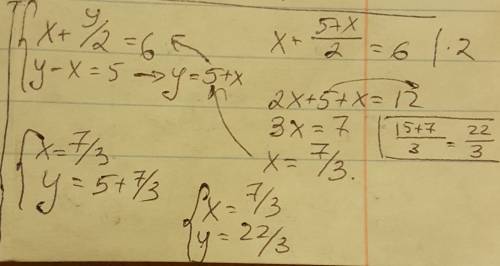 x + y/2 = 6
y - x = 5 → y = 5 + x
x + (5+x)/2 = 6 | · 2
2x + 5 + x = 12
3x = 7
x = 7/3.
(15+7)/3 = 22/3
x = 7/3
y = 5 + 7/3
x = 7/3
y = 22/3